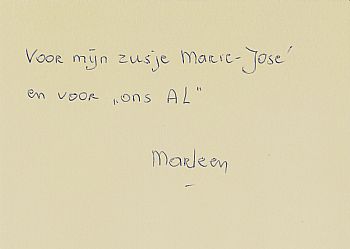 Voor mijn zusje Marie-José
en voor „ons AL"
Marleen